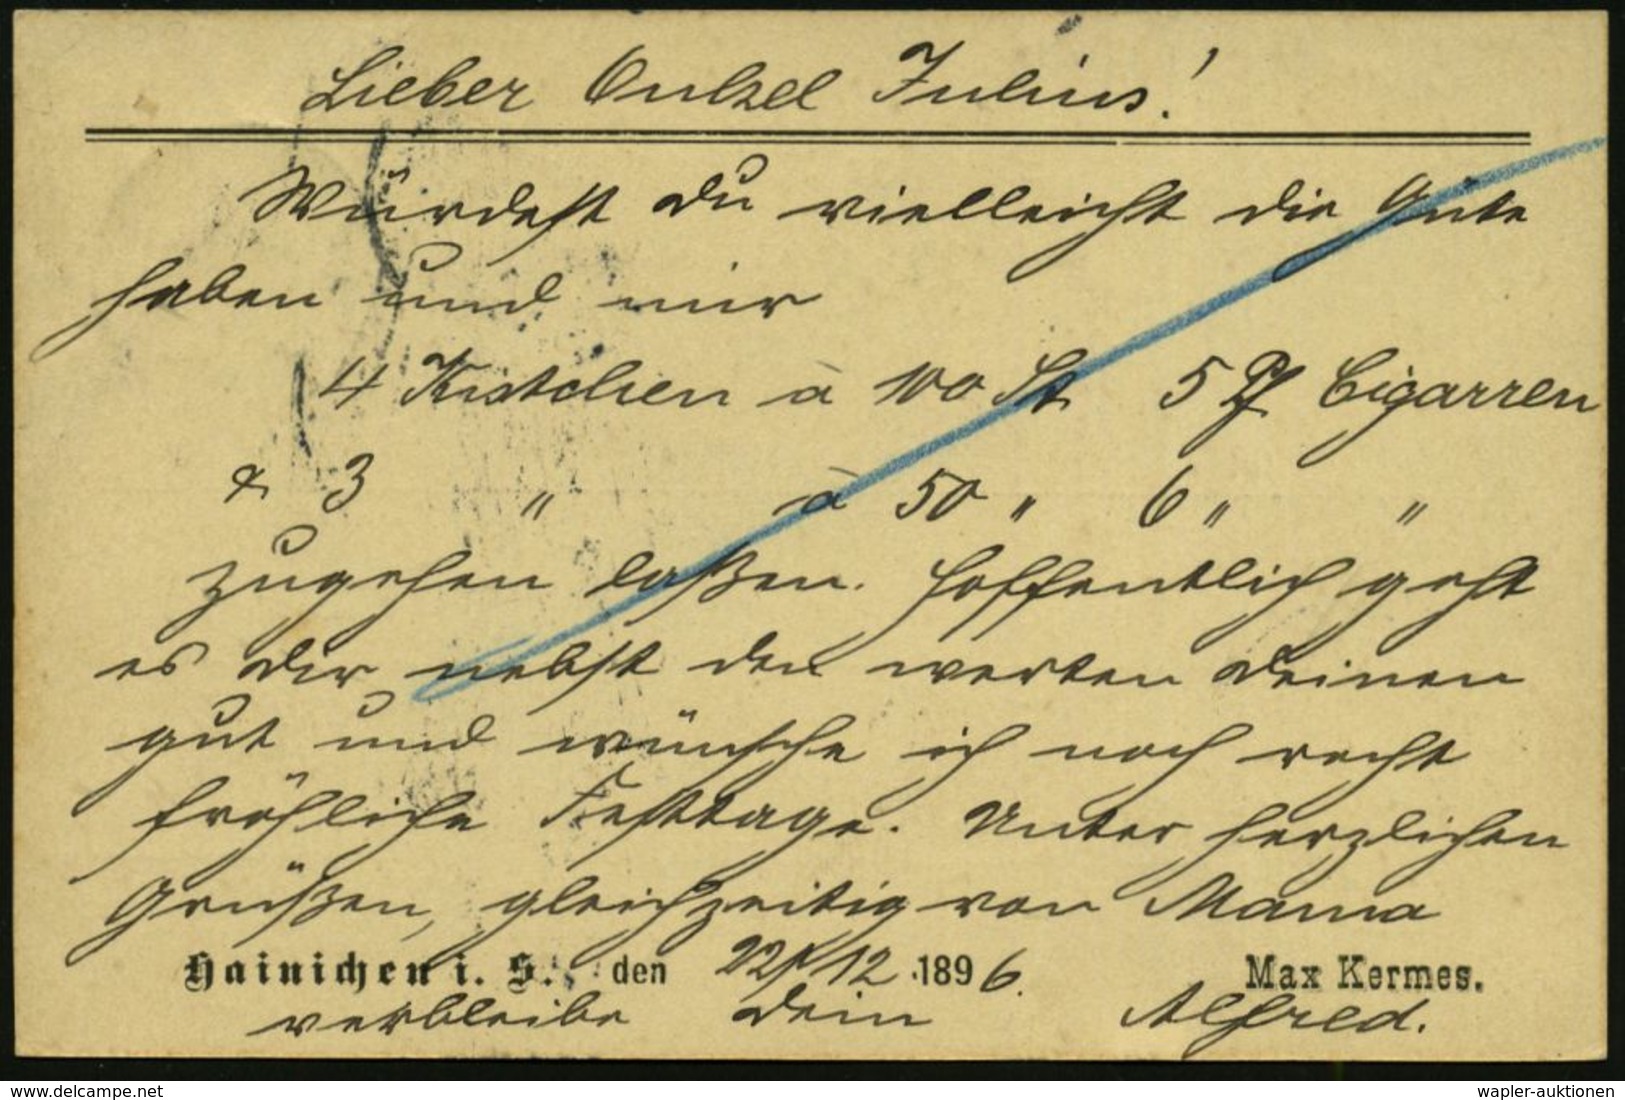 Lieber Onkel Julius!
Würdest Du vielleicht die Güte
haben und mir
4 Kistchen à 100 St 5 Pf Cigarren
& 3 " à 50 " 6 " "
zugehen laßen. Hoffentlich geht
es Dir nebst den werten Deinen
gut und wünsche ich noch recht
fröhliche Festtage. Unter herzlichen
Grüßen, gleichzeitig von Mama
Hainichen i. S., den 22/12 1896. Max Kermes.
verbleibe Dein Alfred.
www.delcampe.net wapler-auktionen